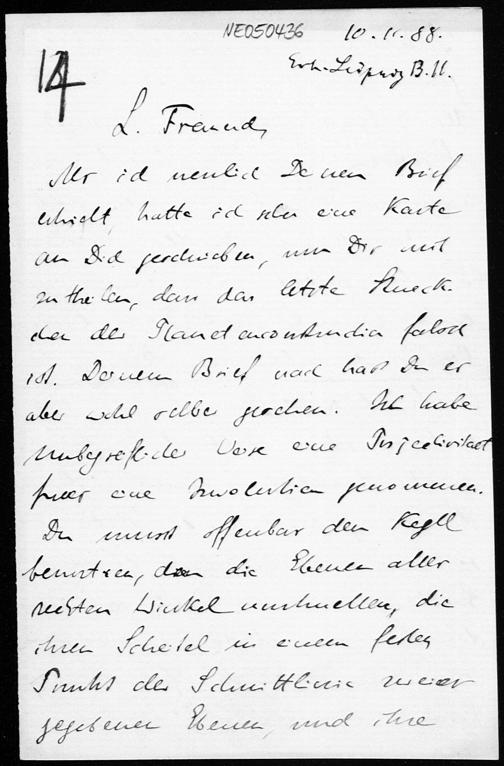 NE050436
10.11.88.
Leipzig B.11.
14
L. Freund,
Als ich neulich Deinen Brief
erhielt, hatte ich schon eine Karte
an Dich geschrieben, um Dir mit
zu theilen, dass das letzte Stueck-
chen der Planetenconstruction falsch
ist. Deinem Brief nach hast Du es
aber wohl selber gesehen. Ich habe
unbegreiflicher Weise eine Projectivitaet
fuer eine Involution genommen.
Du musst offenbar den Kegel
benutzen, den die Ebenen aller
rechten Winkel umhuellen, die
ihren Scheitel in einem festen
Punkt der Schnittlinie zweier
gegebenen Ebenen, und ihre